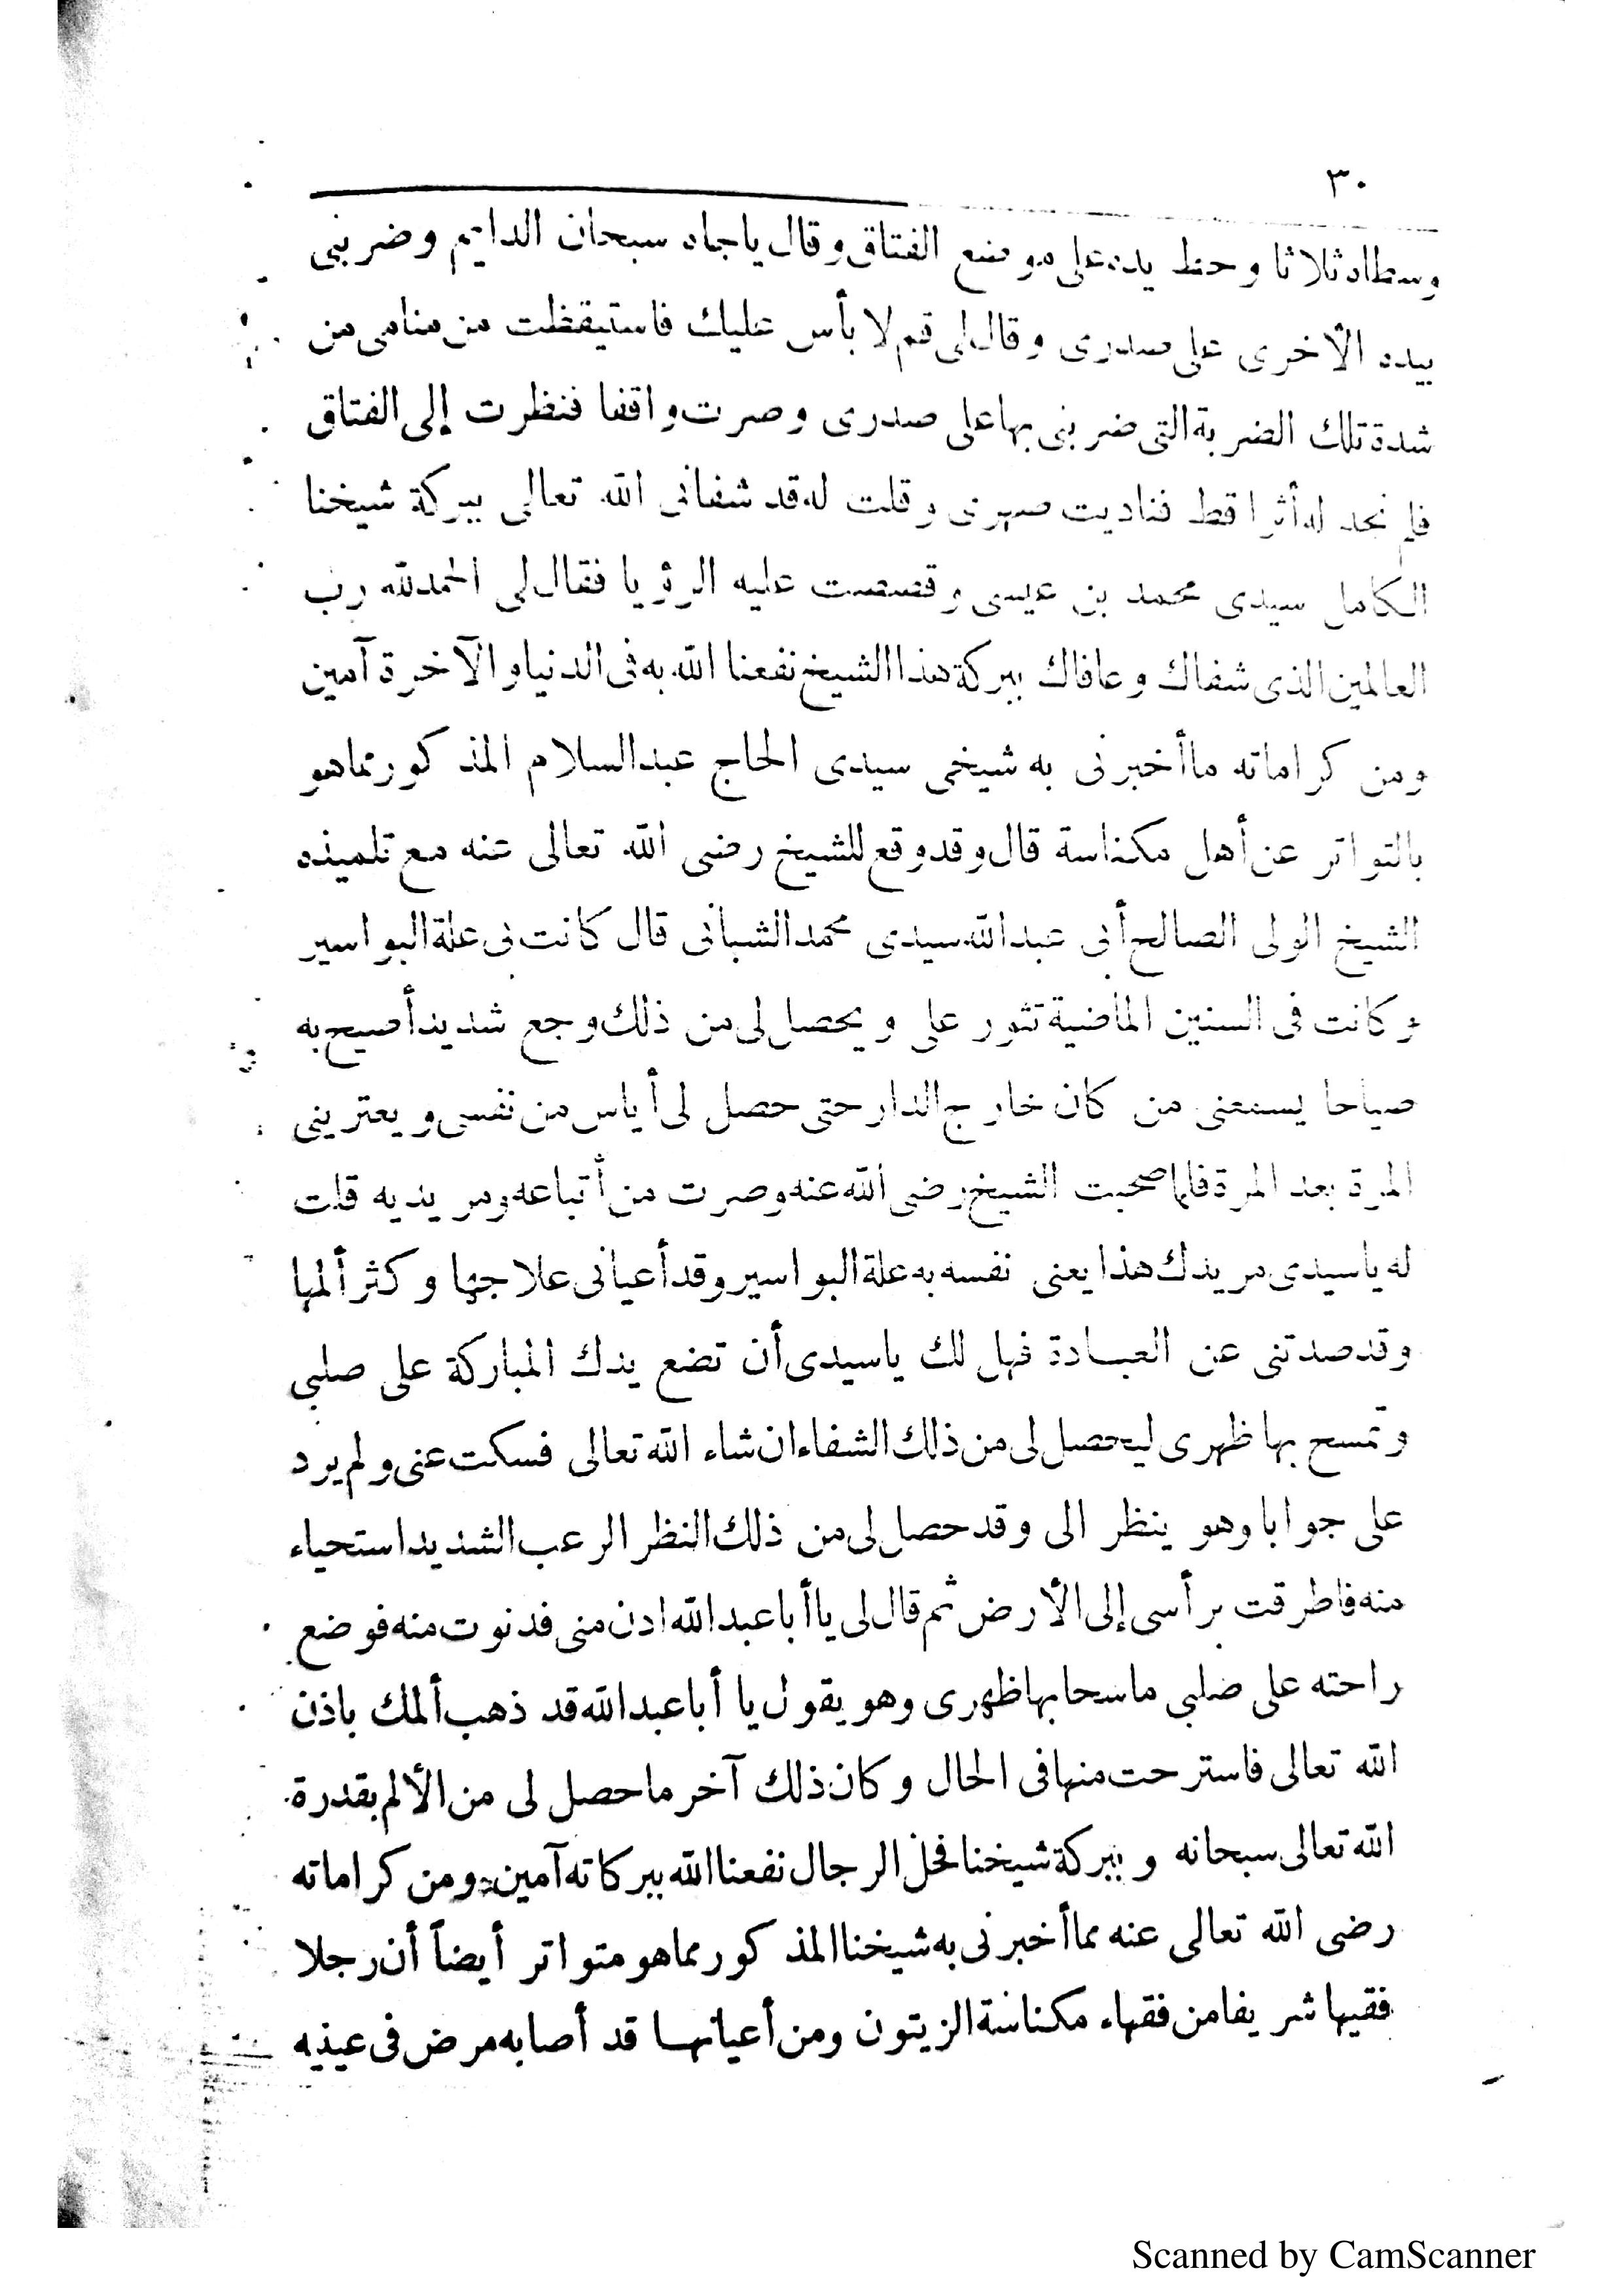 ٣٠
وسطاه ثلاثا وحط يده على موضع الفتاق وقال ياجاه سبحان الدايم وضربنى
بيده الأخرى على صدرى وقال لى قم لا بأس عليك فاستيقظت من منامى من
شدة تلك الضربة التى ضربنى بها على صدرى وصرت واقفا فنظرت إلى الفتاق
فلم نجد له أثرا قط فناديت صهرى وقلت له قد شفانى الله تعالى ببركة شيخنا
الكامل سيدى محمد بن عيسى وقصصت عليه الرؤيا فقال لى الحمد لله رب
العالمين الذى شفاك وعافاك ببركة هذا الشيخ نفعنا الله به فى الدنيا والآخرة آمين
ومن كراماته ما أخبرنى به شيخى سيدى الحاج عبد السلام المذكور مما هو
بالتواتر عن أهل مكناسة قال وقد وقع للشيخ رضى الله تعالى عنه مع تلميذه
الشيخ الولى الصالح أبى عبد الله سيدى محمد الشبانى قال كانت بى علة البواسير
وكانت فى السنين الماضية تثور على ويحصل لى من ذلك وجع شديد أصيح به
صياحا يسمعنى من كان خارج الدار حتى حصل لى أياس من نفسى ويعترينى
المرة بعد المرة فلما صحبت الشيخ رضى الله عنه وصرت من أتباعه ومريديه قلت
له ياسيدى مريدك هذا يعنى نفسه به علة البواسير وقد أعيانى علاجها وكثر ألمها
وقد صدتنى عن العبادة فهل لك ياسيدى أن تضع يدك المباركة على صلبى
وتمسح بها ظهرى ليحصل لى من ذلك الشفاء ان شاء الله تعالى فسكت عنى ولم يرد
على جوابا وهو ينظر الى وقد حصل لى من ذلك النظر الرعب الشديد استحياء
منه فاطرقت برأسى إلى الأرض ثم قال لى يا أبا عبد الله ادن منى فدنوت منه فوضع
راحته على صلبى ماسحا بها ظهرى وهو يقول يا أبا عبد الله قد ذهب ألمك باذن
الله تعالى فاسترحت منها فى الحال وكان ذلك آخر ما حصل لى من الألم بقدرة
الله تعالى سبحانه وببركة شيخنا فحل الرجال نفعنا الله ببركاته آمين ومن كراماته
رضى الله تعالى عنه مما أخبرنى به شيخنا المذكور مما هو متواتر أيضاً أن رجلا
فقيها شريفا من فقهاء مكناسة الزيتون ومن أعيانها قد أصابه مرض فى عينيه
Scanned by CamScanner